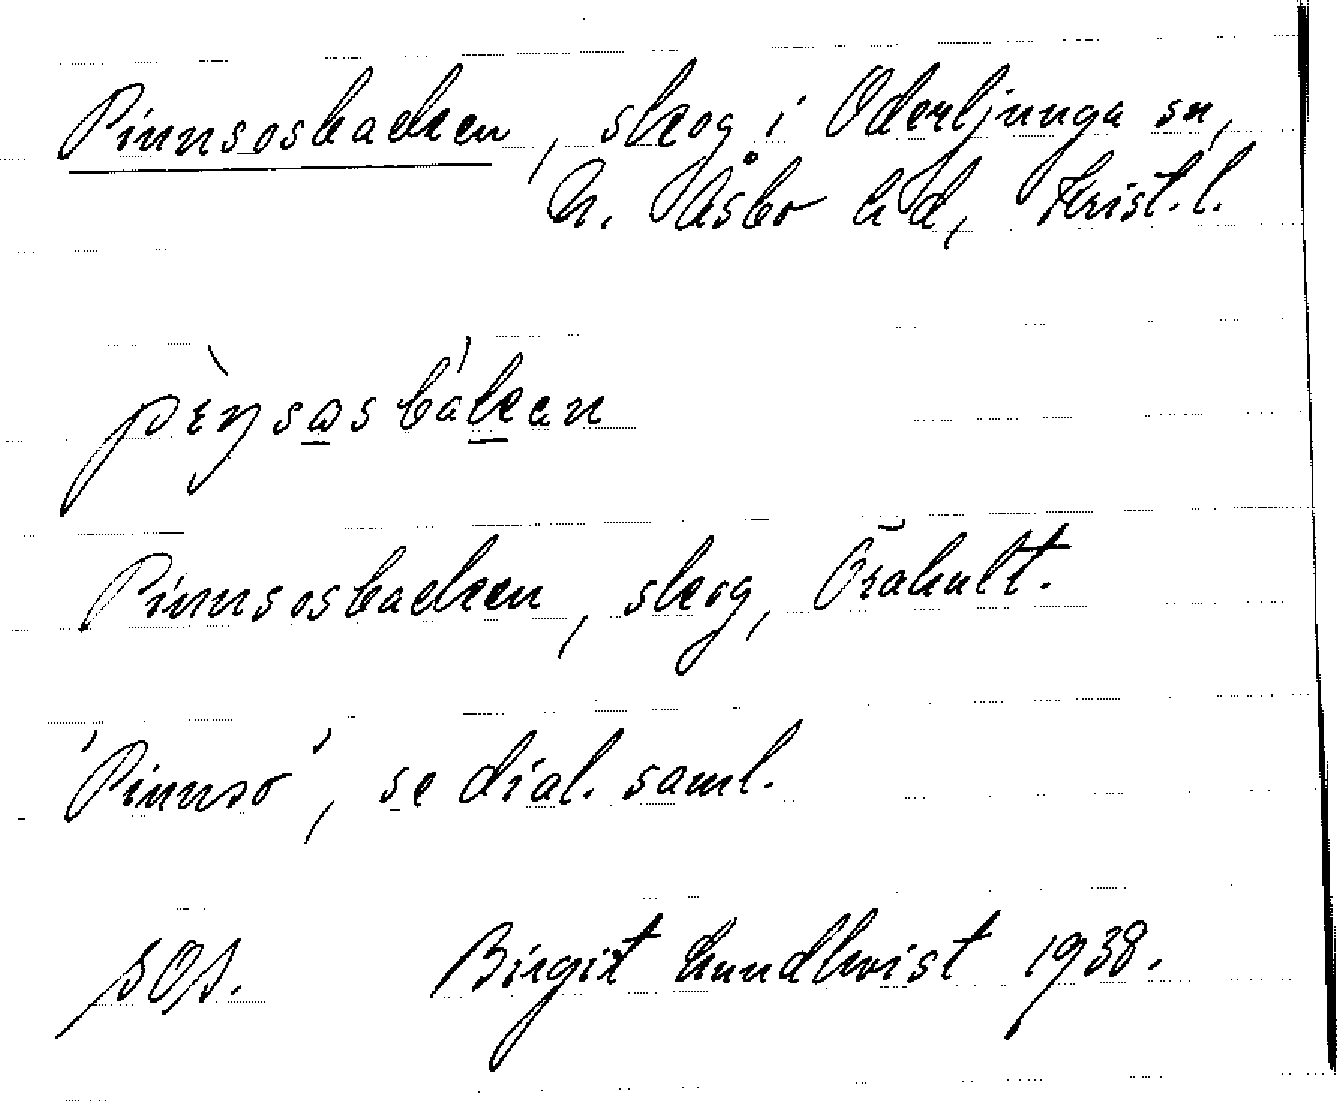 Pinnsosbacken, skog i Oderljunga sn,
N. Åsbo hd, Krist. l.
Pinnsosbacken, skog, Örahult.
'Pinnso', se dial. saml.
Birgit Lundkvist 1938.